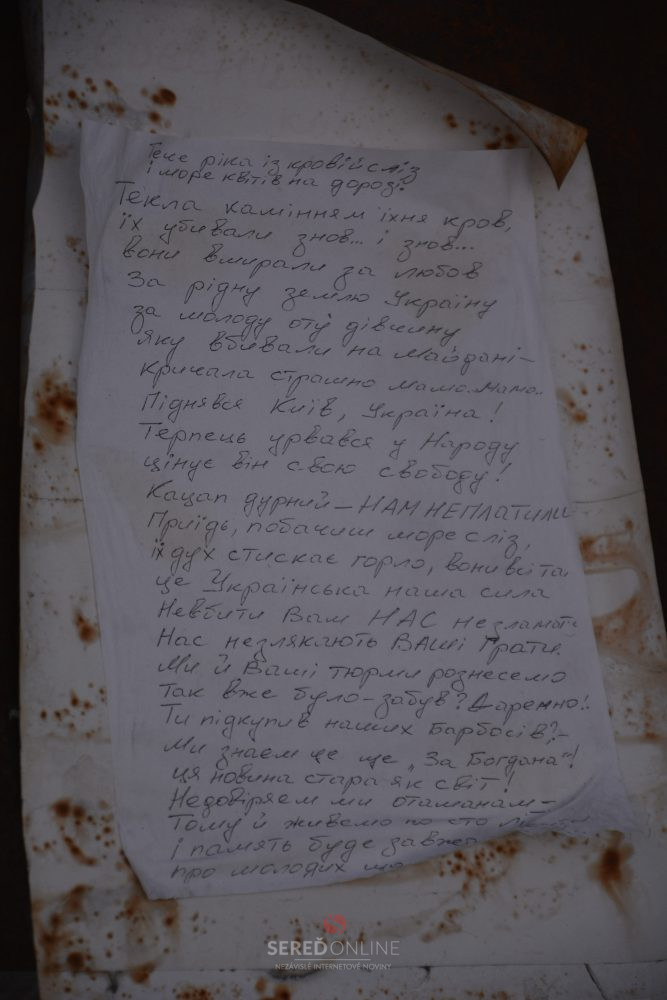 Тече ріка із крові й сліз
і море квітів на дорозі.
Текла камінням їхня кров,
їх убивали знов... і знов...
вони вмирали за любов
За рідну землю Україну
за молоду оту дівчину
яку вбивали на Майдані –
кричала страшно мамо.. мамо..
Піднявся Київ, Україна!
Терпець урвався у Народу
цінує він свою свободу!
Кацап дурний – НАМ НЕПЛАТИЛИ
Приїдь, побачиш море сліз,
їх дух стискає горло, вони всі
це Українська наша сила
Невбити Вам НАС
Нас незлякають ВАШІ Грати
Ми й Ваші тюрми рознесемо
Так вже було – забув? Даремно!
Ти підкупив наших Барбосів? –
Ми знаєм це ще „За Богдана"!
ця новина стара як світ!
Недовіряєм ми отаманам –
Тому й живемо по сто
і память буде
про молодих
SEREĎONLINE
NEZÁVISLÉ INTERNETOVÉ NOVINY